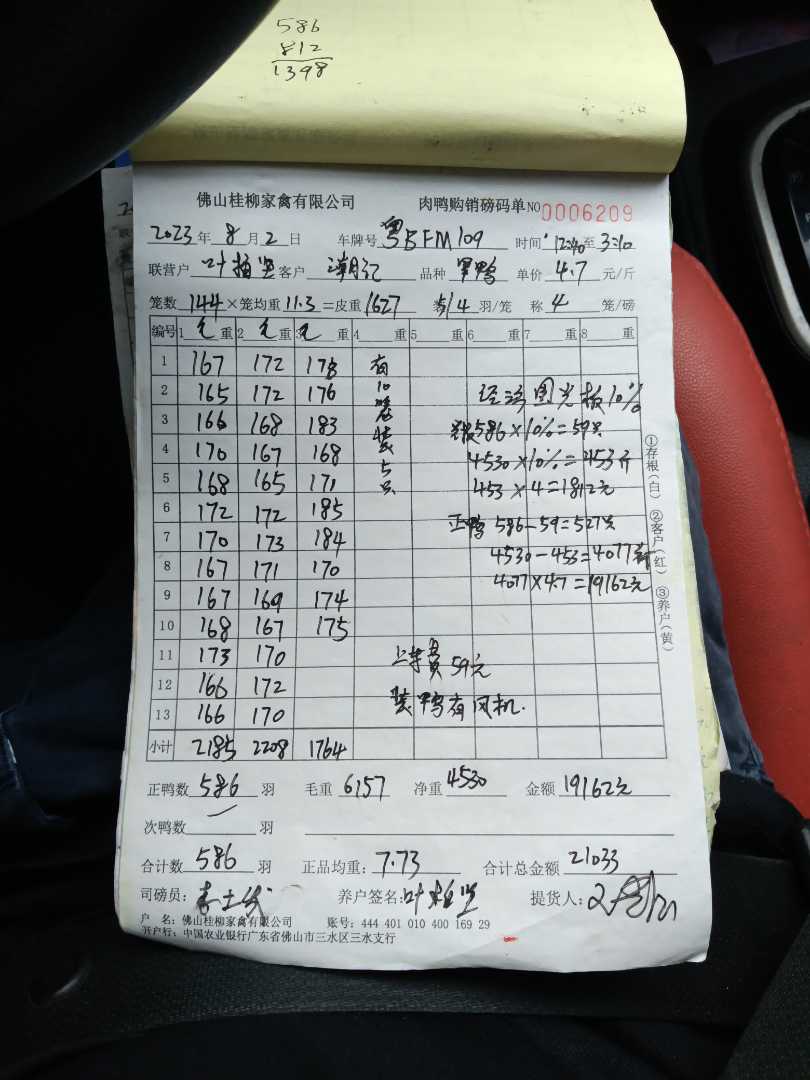 586
812
1398
佛山桂柳家禽有限公司 肉鸭购销磅码单 NO 0006209
2023年8月2日 车牌号 粤BFM109 时间 12:40至3:10
联营户 叶柏坚 客户 潮记 品种 单价 4.7 元/斤
笼数 144 × 笼均重 11.3 = 皮重 1627 装5/4 羽/笼 称 4 笼/磅
编号 1 毛 重 2 毛 重 3 毛 重 4 重 5 重 6 重 7 重 8 重
1 167 172 178 有
2 165 172 176 10 图光板10%
3 166 168 183 586×10%=59只
4 170 167 168 装 4530×10%=453斤
5 168 165 171 5只 453×4=1812元
6 172 172 185 正鸭 586-59=527只
7 170 173 184 4530-453=4077斤
8 167 171 170 4077×4.7=19162元
9 167 169 174
10 168 167 175
11 173 170 上车费 59元
12 166 172
13 166 170 装鸭有风机.
小计 2185 2208 1764
正鸭数 586 羽 毛重 6157 净重 4530 金额 19162元
次鸭数 羽
合计数 586 羽 正品均重: 7.73 合计总金额 21033
司磅员: 养户签名: 叶柏坚 提货人:
户 名: 佛山桂柳家禽有限公司 账号: 444 401 010 400 169 29
开户行: 中国农业银行广东省佛山市三水区三水支行
①存根(白) ②客户(红) ③养户(黄)